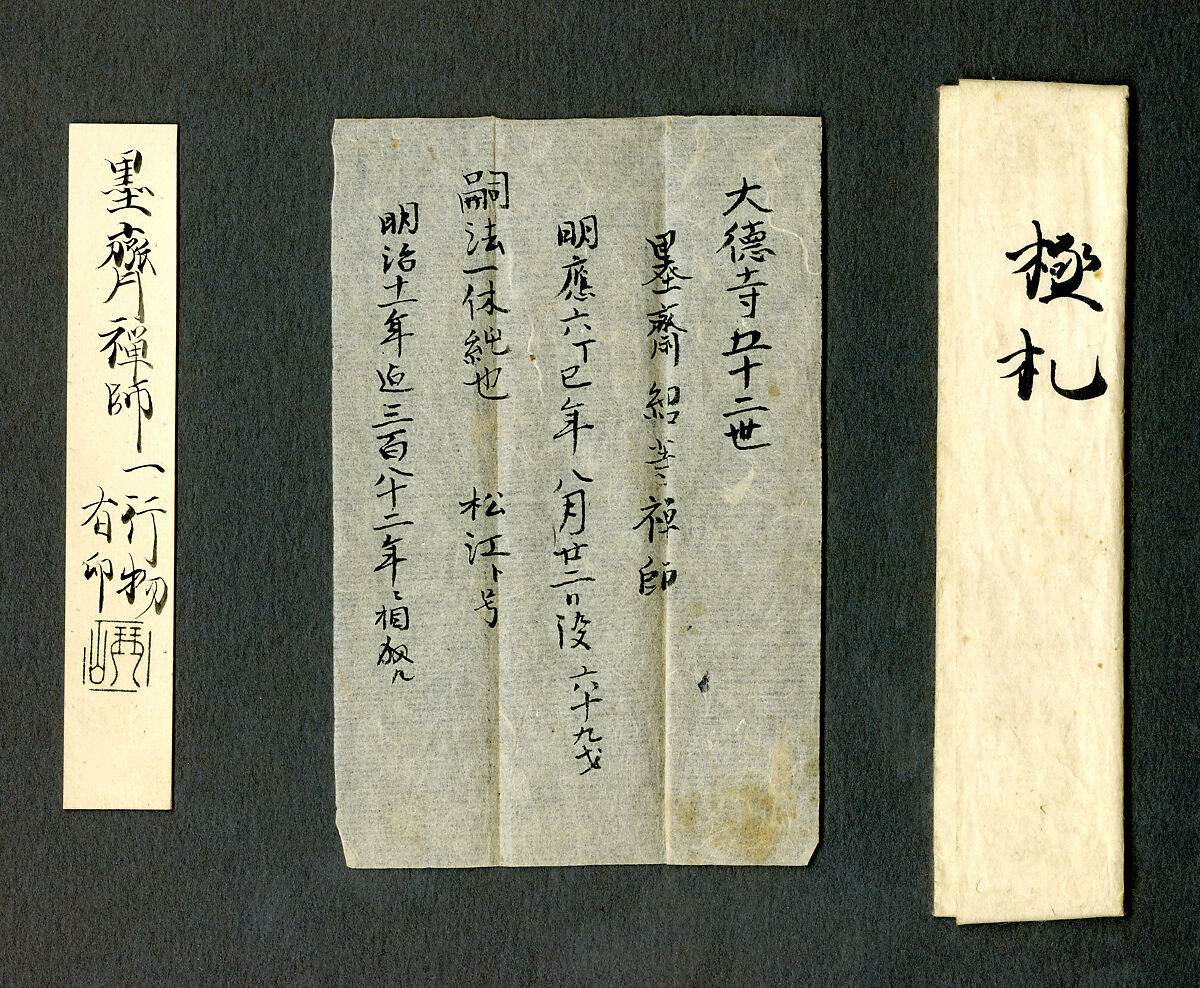 極札
大德寺五十二世
墨齋紹等禅師
明應六丁巳年八月廿二日没 六十九才
嗣法一休純也 松江ト号
明治十一年迠三百八十二年ニ相成ル
墨齋禅師一行物
有印